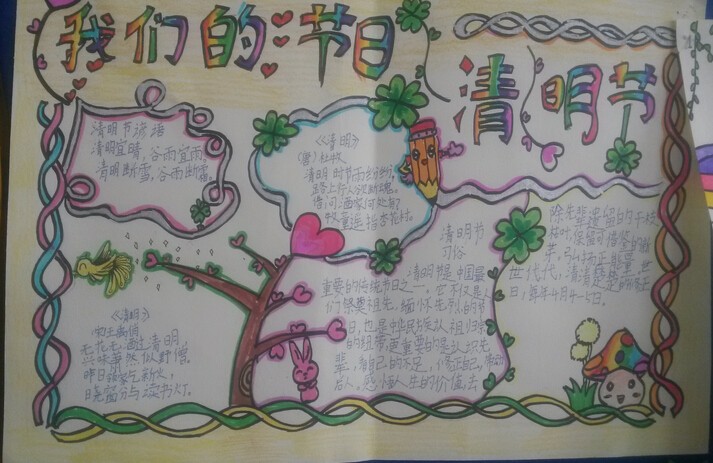 我们的节日
清明节
清明节谚语
清明宜晴，谷雨宜雨。
清明断雪，谷雨断霜。
《清明》
（唐）杜牧
清明时节雨纷纷，
路上行人欲断魂。
借问酒家何处有？
牧童遥指杏花村。
《清明》
宋王禹偁
无花无酒过清明
兴味萧然似野僧。
昨日邻家乞新火，
晓窗分与读书灯。
清明节
习俗
清明节是中国最
重要的传统节日之一，它不仅是人
们祭奠祖先，缅怀先烈的节
日，也是中华民族认祖归宗
的纽带，更重要的是认祖先
辈，
后人。感悟人生的价值，去
除先辈遗留的干枝
枯叶，保留可借鉴的
世代代，清清楚楚的
日，每年4月4-5日。